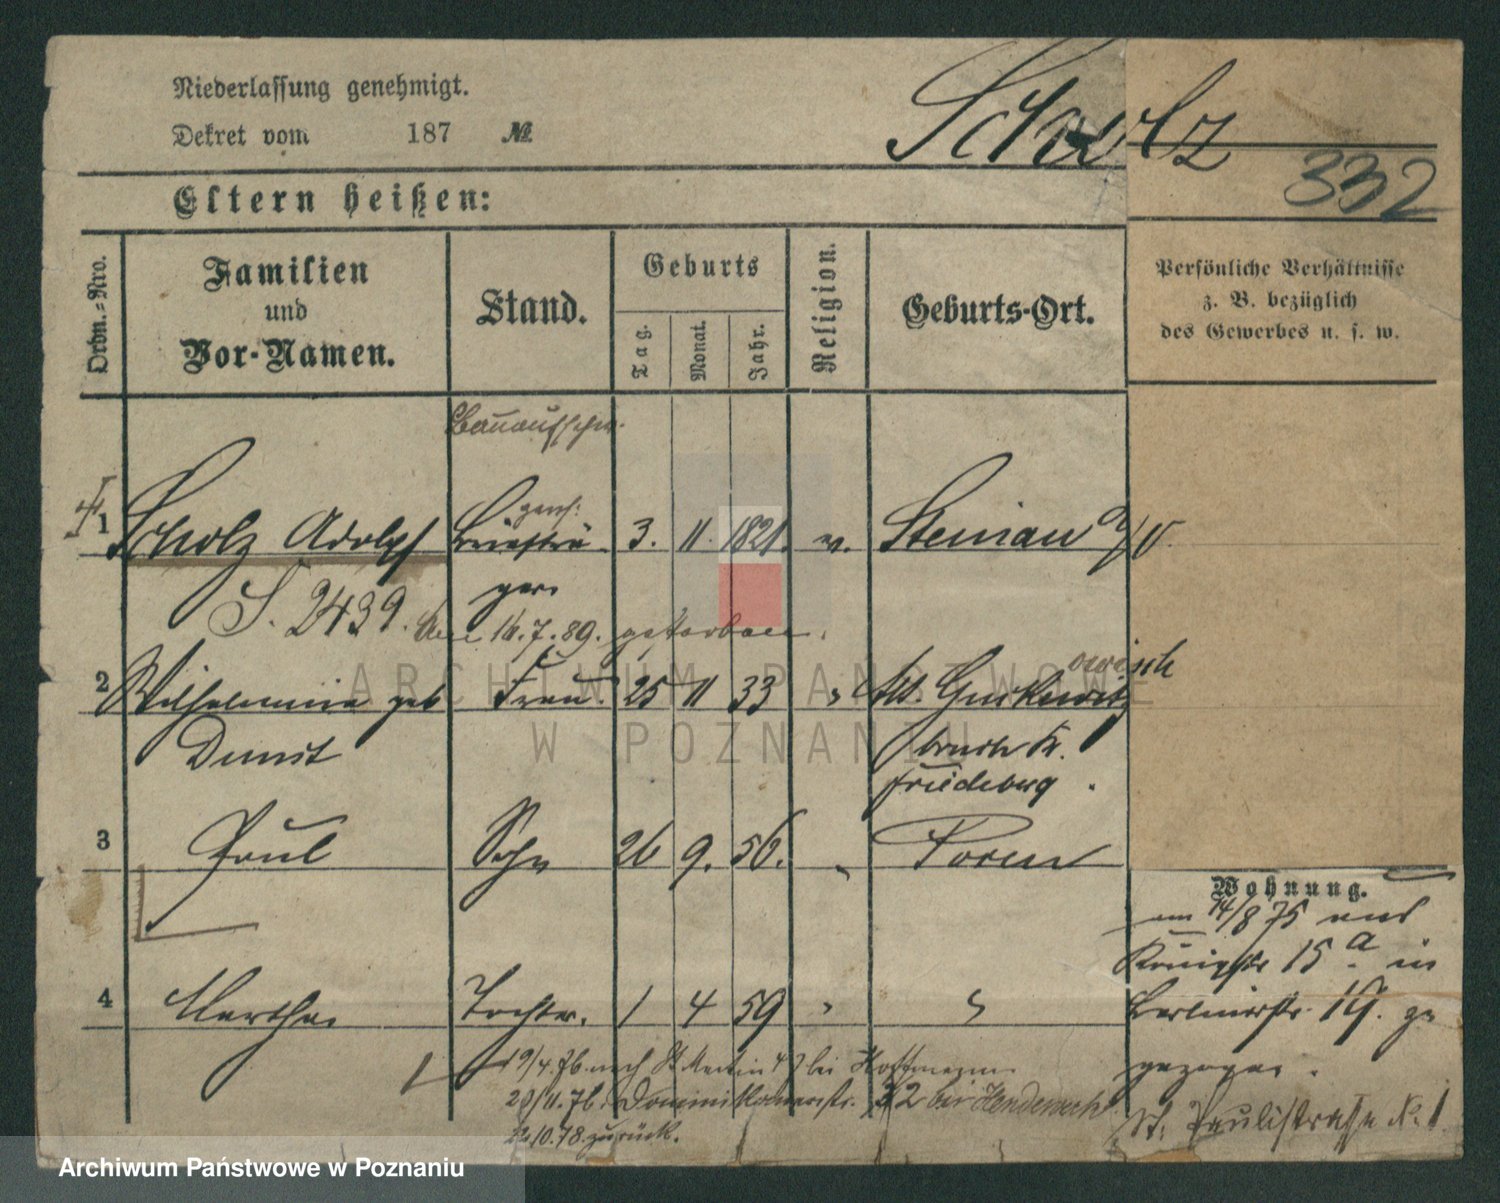 Niederlassung genehmigt.
Dekret vom 187 №
Scholz
332
Eltern heißen:
Ordn.=Nro.
Familien und Vor-Namen.
Stand.
Geburts
Tag.
Monat.
Jahr.
Religion.
Geburts-Ort.
Persönliche Verhältnisse
z. B. bezüglich
des Gewerbes u. s. w.
Bauaufseher
1 Scholz Adolph pens: Briefträ- 3. 11. 1821. ev. Steinau a/O.
ger
S. 2439. den 16.7.89. gestorben.
2 Wilhelmine geb Frau. 25 11 33 " Alt. Gurkowisch
Dunst bruch Kr.
Friedeberg.
3 Paul Sohn 26 9. 56. " Posen
Wohnung.
am 14/8 75 von
Königstr 15 a. in
4 Martha Tochter. 1 4 59 " " Berlinerstr. 19. ge
gezogen.
19/4.76. nach St. Martin 47 bei Hoffmann
20/11.76. Dominikanerstr. 32 bei
22.10.78. zurück.
St. Paulistrasse N. 1.
ARCHIWUM PAŃSTWOWE
W POZNANIU
Archiwum Państwowe w Poznaniu